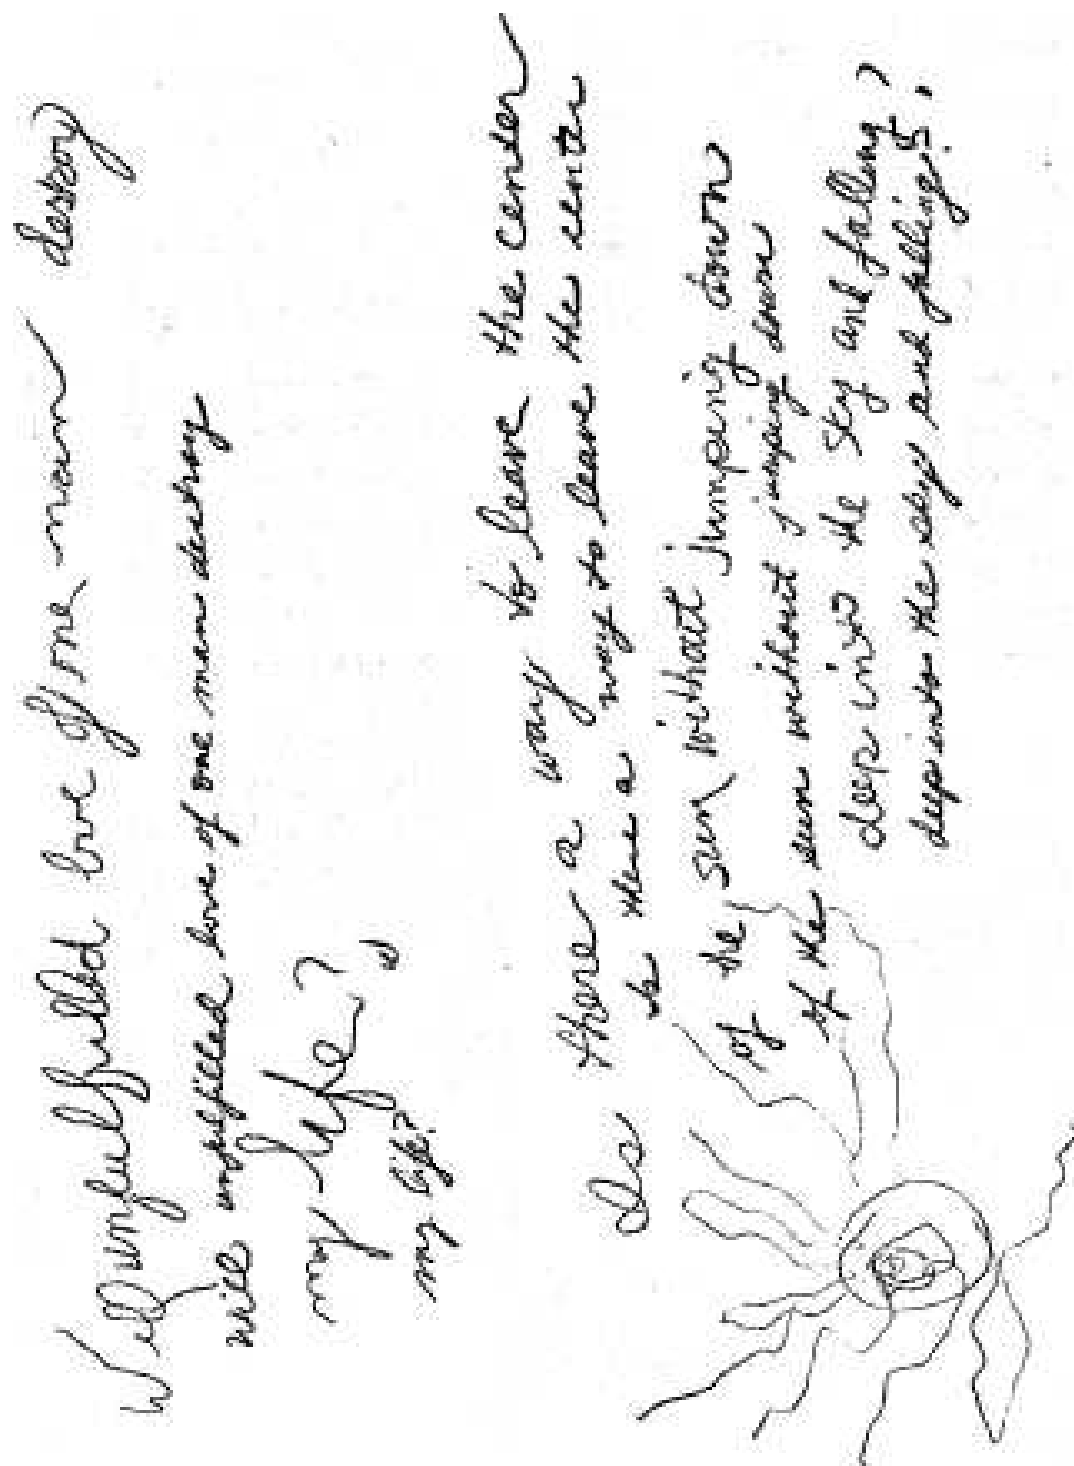 Will unfulfulled love of one man destroy
will unfulfilled love of one man destroy
my life?
my life?
Is there a way to leave the center
is there a way to leave the center
of the sun without jumping down
of the sun without jumping down
deep into the sky and falling?
deep into the sky and falling?